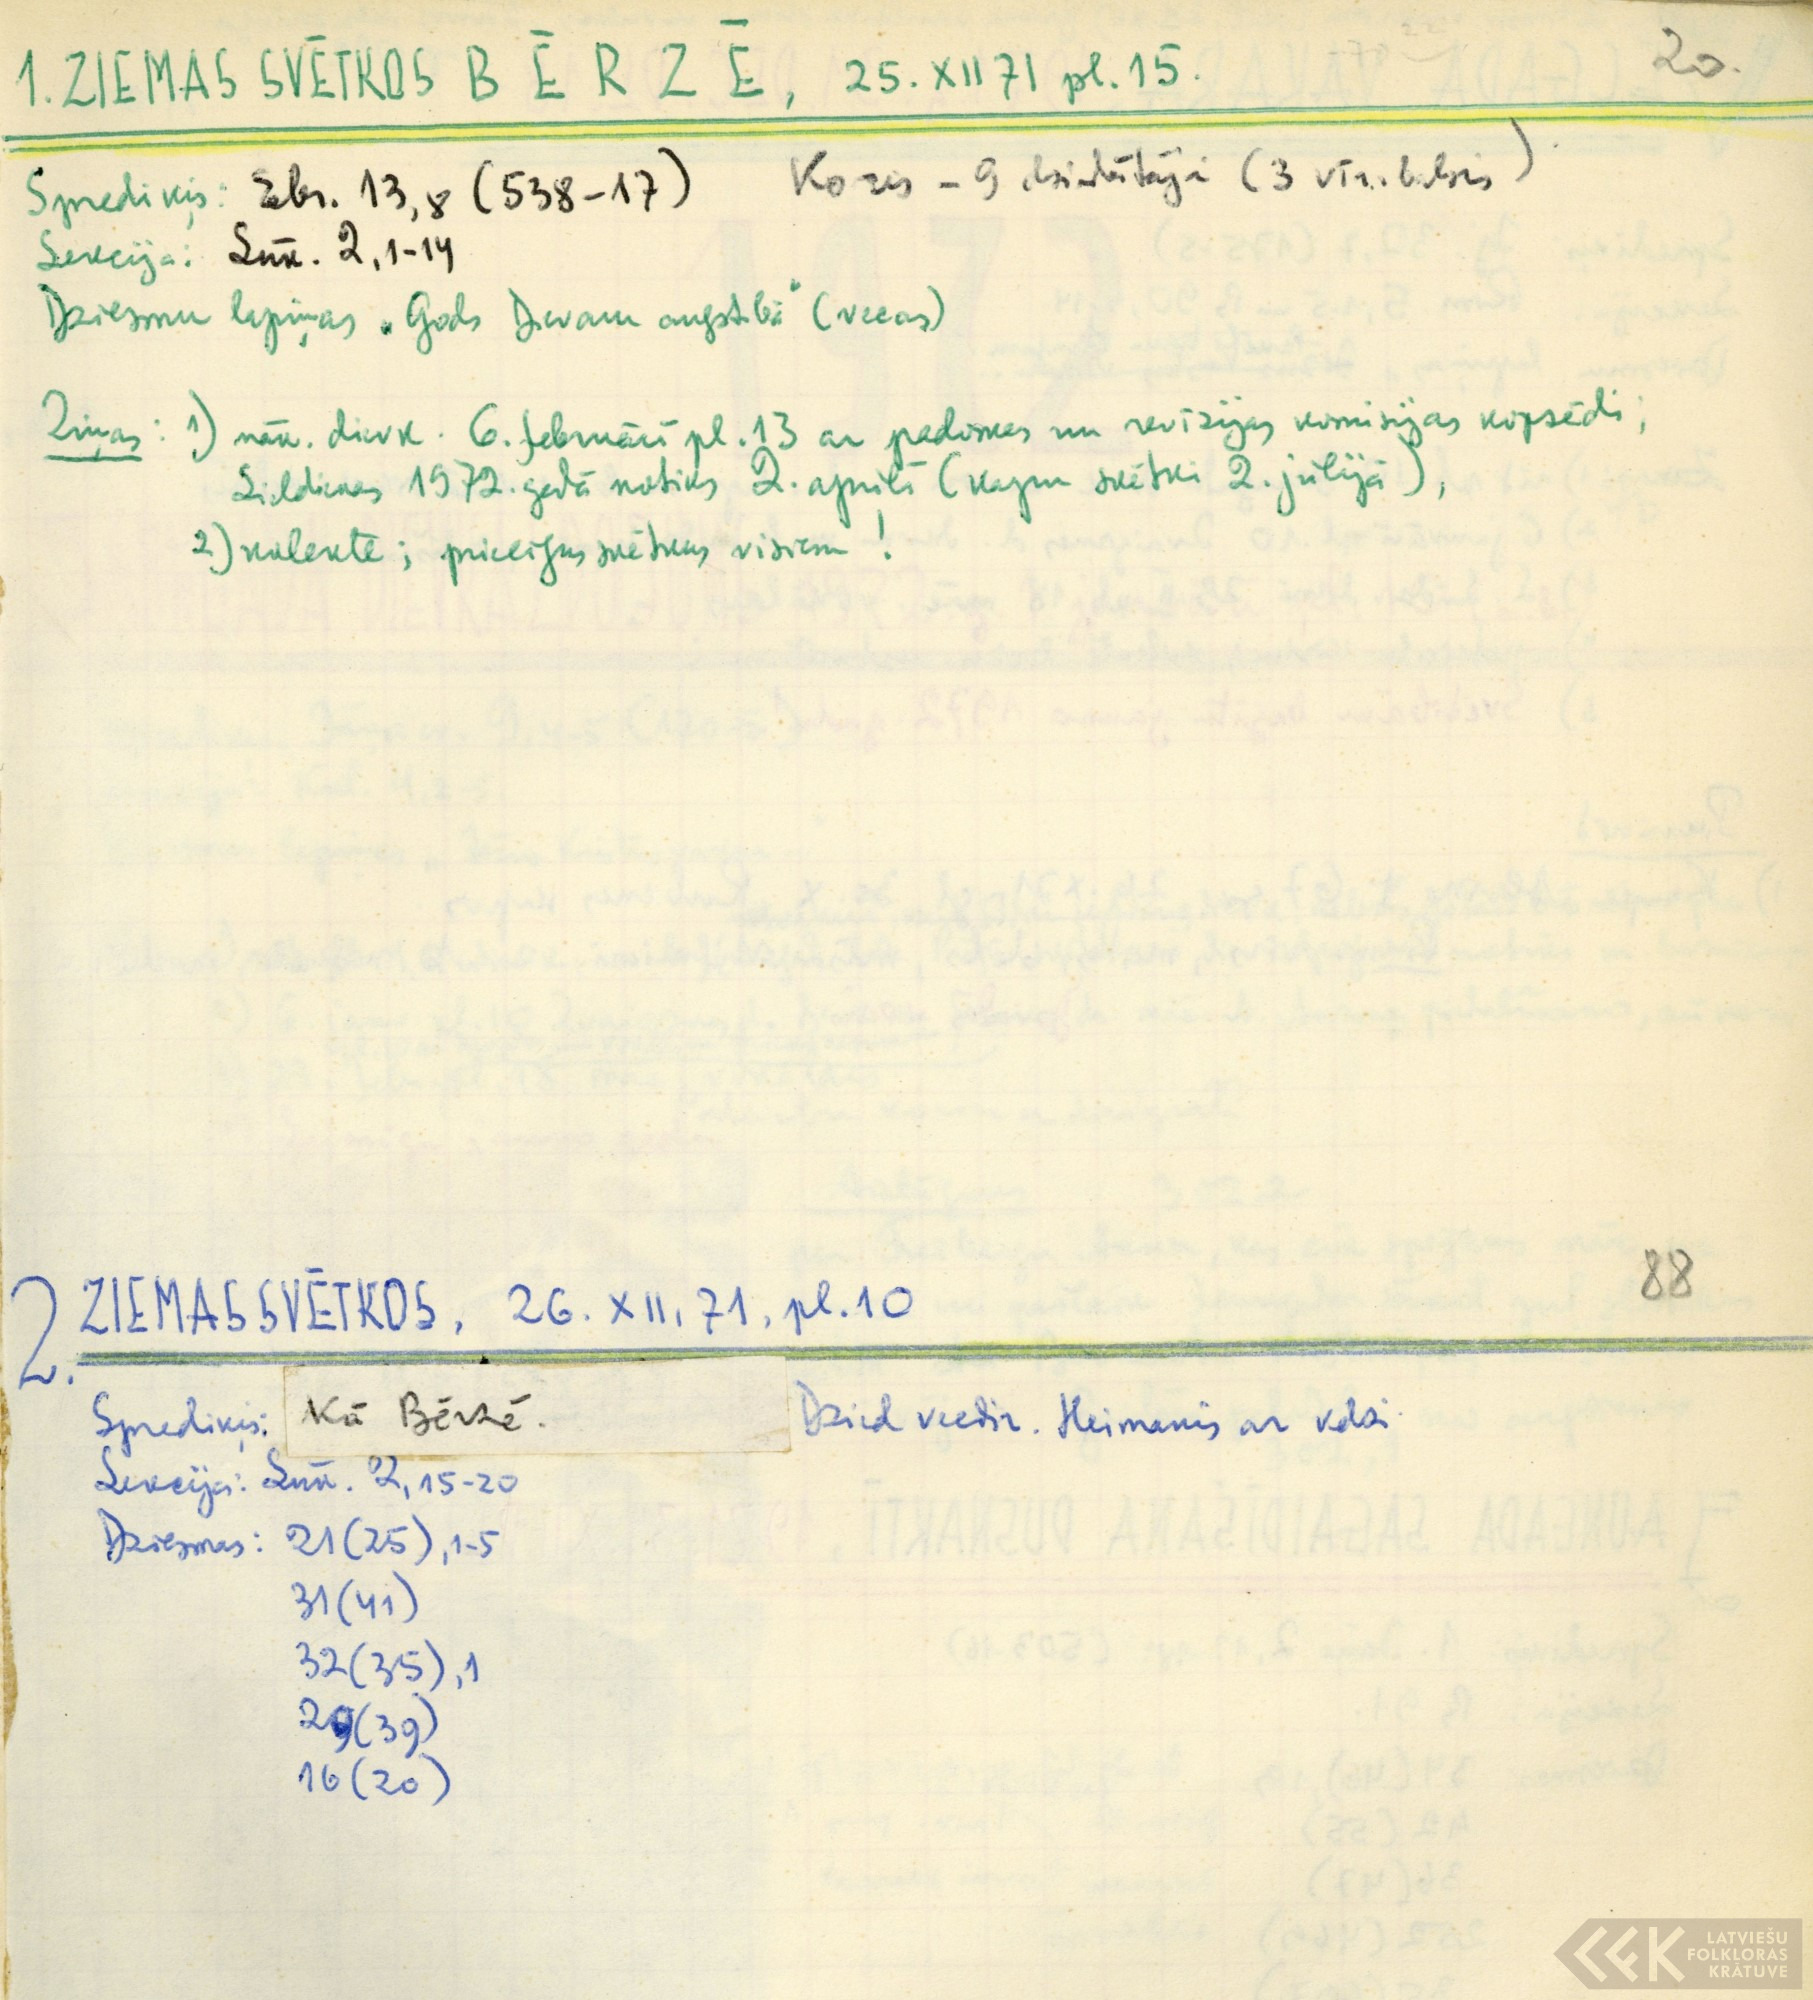 1. ZIEMAS SVĒTKOS BĒRZĒ, 25. XII 71 pl. 15.
20.
Sprediķis: Ebr. 13,8 (538-17) Koris - 9 dziedātāji (3 vīr. balsis)
Lekcija: Lūk. 2,1-14
Dziesmu lapiņas "Gods Dievam augstībā" (vecas)
Ziņas: 1) nāk. dievk. 6. februārī pl. 13 ar padomes un revīzijas komisijas kopsēdi;
Lieldienas 1972. gadā notiks 2. aprīlī (kapu svētki 2. jūlijā),
2) kolekte; priecīgus svētkus visiem!
88
2. ZIEMASSVĒTKOS, 26. XII. 71, pl. 10
Sprediķis: Kā Bērzē. Dzied Heimanis ar
Lekcija: Lūk. 2,15-20
Dziesmas: 21(25),1-5
31(41)
32(35),1
29(39)
16(20)
LATVIEŠU
FOLKLORAS
KRĀTUVE